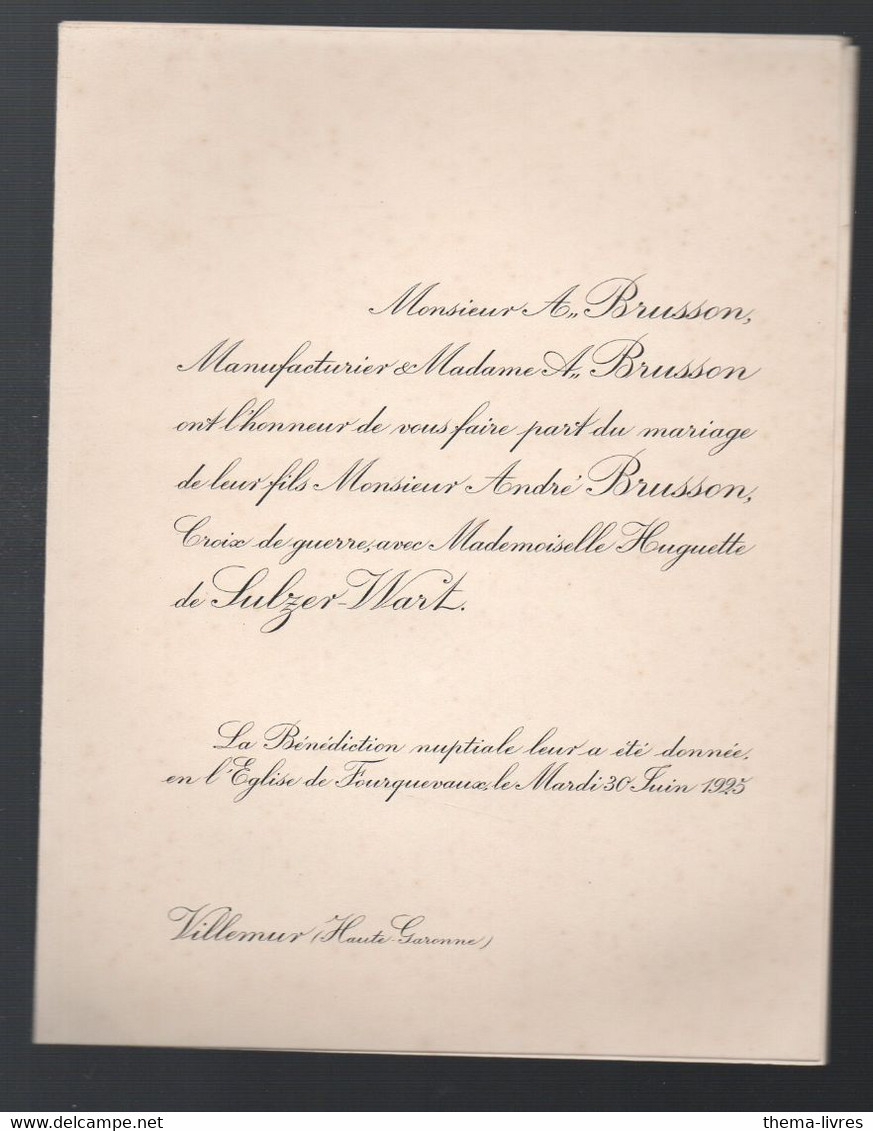 Monsieur A„ Brusson,
Manufacturier & Madame A„ Brusson
ont l'honneur de vous faire part du mariage
de leur fils Monsieur André Brusson,
Croix de guerre, avec Mademoiselle Huguette
de Sulzer-Wart.
La Bénédiction nuptiale leur a été donnée,
en l'Eglise de Fourquevaux, le Mardi 30 Juin 1925
Villemur (Haute-Garonne)
delcampe.net
thema-livres